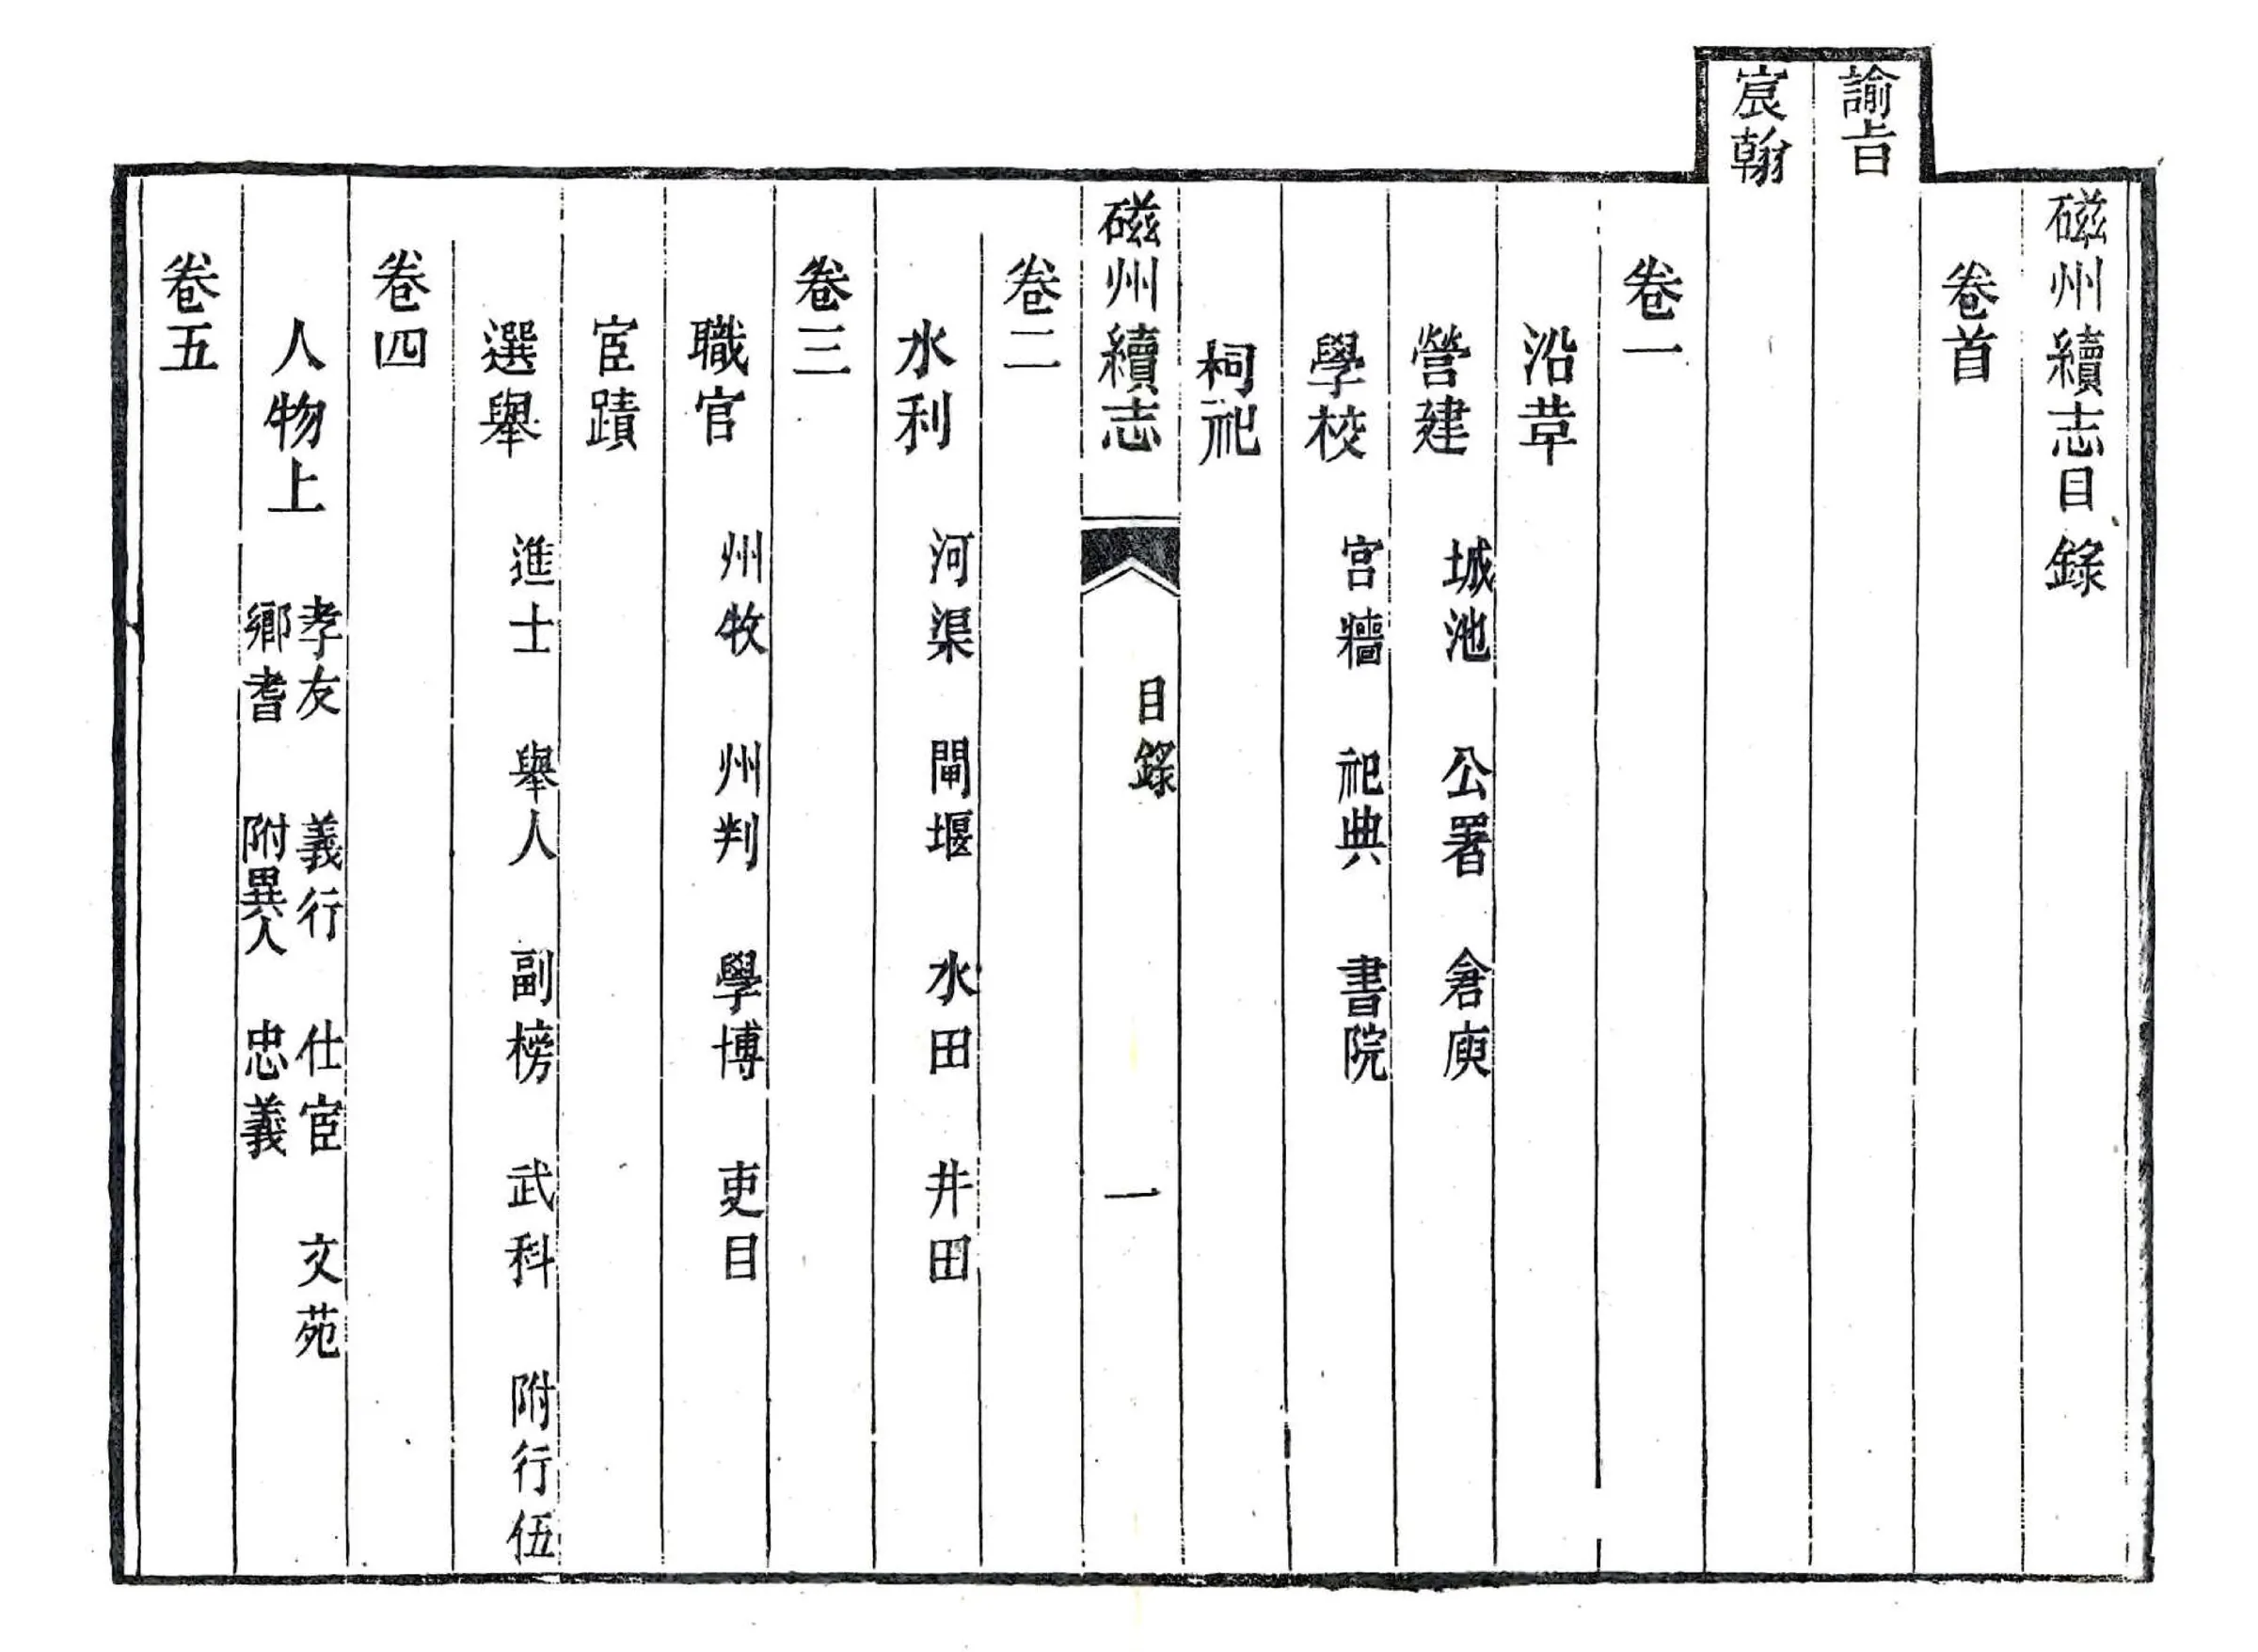 磁州續志目錄
卷首
諭旨
宸翰
卷一
沿革
營建 城池 公署 倉庾
學校 宮牆 祀典 書院
祠祀
磁州續志 目錄 一
卷二
水利 河渠 閘堰 水田 井田
卷三
職官 州牧 州判 學博 吏目
宦蹟
選舉 進士 舉人 副榜 武科 附行伍
卷四
人物上 孝友 義行 仕宦 文苑
鄉耆 附異人 忠義
卷五